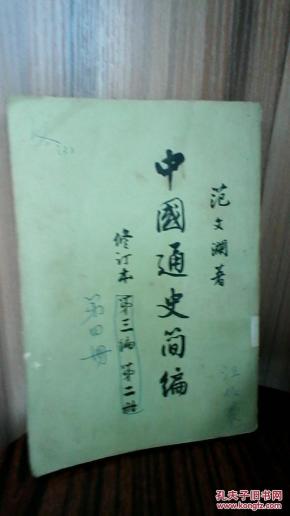 范文澜著
中國通史简编
修订本 第三编 第二册
第四册
孔夫子旧书网